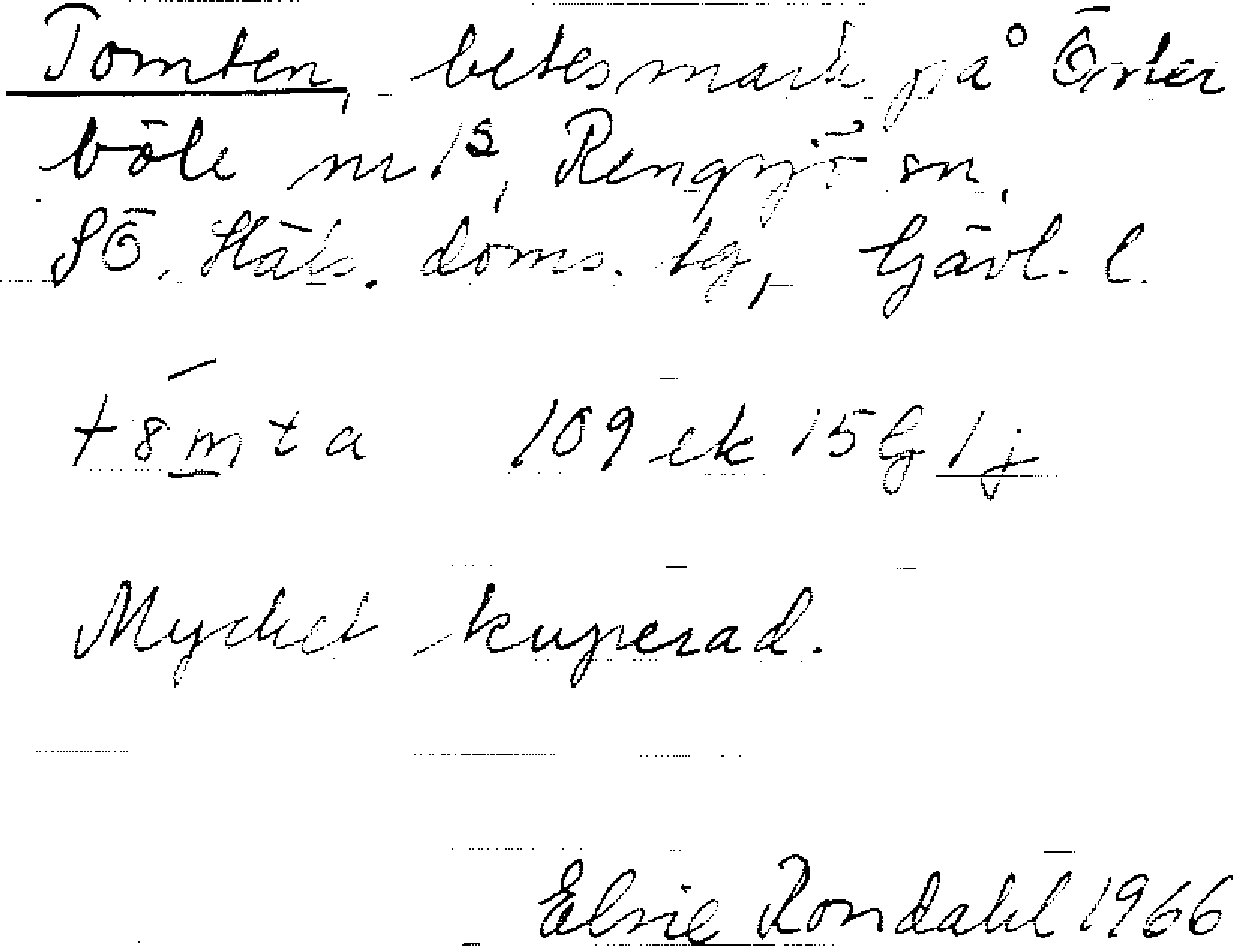 Tomten, betesmark på Öster
böle nr 1², Rengsjö sn,
SÖ. Häls. doms. tg, Gävl. l.
109 ek 15G 1j
Mycket kuperad.
Elsie Rondahl 1966